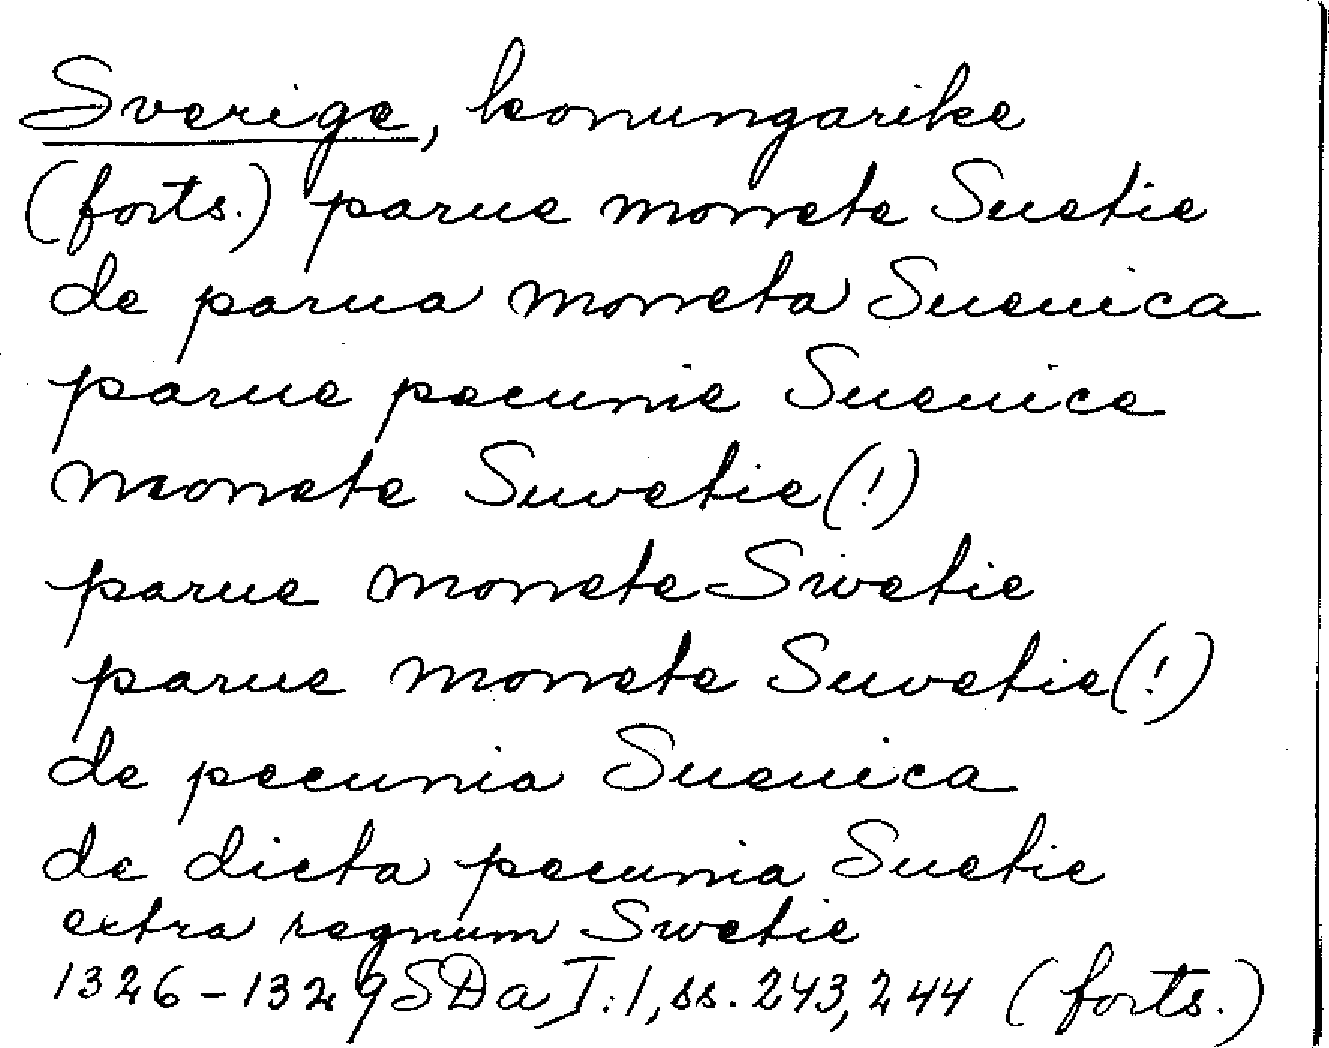 Sverige, konungarike
(forts.) parue monete Suetie
de parua moneta Sueuica
parue pecunie Sueuice
monete Suvetie (!)
parue monete Swetie
parue monete Suvetie (!)
de pecunia Sueuica
de dicta pecunia Suetie
extra regnum Swetie
1326-1329 SDa I:1, ss. 243, 244 (forts.)